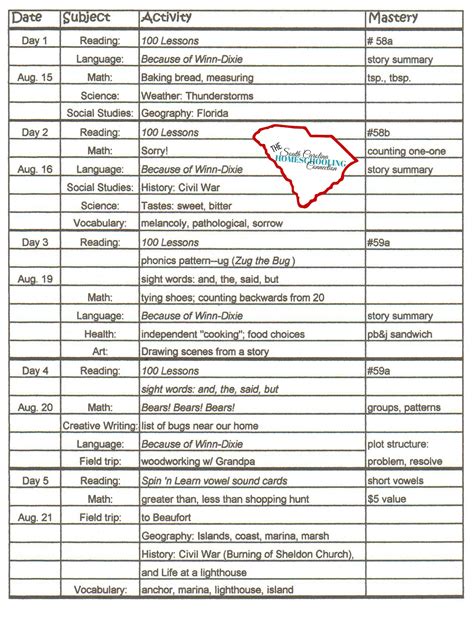 Date Subject Activity Mastery
Day 1 Reading: 100 Lessons # 58a
Language: Because of Winn-Dixie story summary
Aug. 15 Math: Baking bread, measuring tsp., tbsp.
Science: Weather: Thunderstorms
Social Studies: Geography: Florida
Day 2 Reading: 100 Lessons #58b
Math: Sorry! counting one-one
Aug. 16 Language: Because of Winn-Dixie story summary
Social Studies: History: Civil War
Science: Tastes: sweet, bitter
Vocabulary: melancoly, pathological, sorrow
THE
South Carolina
HOMESCHOOLING
Connection
Day 3 Reading: 100 Lessons #59a
phonics pattern--ug (Zug the Bug )
Aug. 19 sight words: and, the, said, but
Math: tying shoes; counting backwards from 20
Language: Because of Winn-Dixie story summary
Health: independent "cooking"; food choices pb&j sandwich
Art: Drawing scenes from a story
Day 4 Reading: 100 Lessons #59a
sight words: and, the, said, but
Aug. 20 Math: Bears! Bears! Bears! groups, patterns
Creative Writing: list of bugs near our home
Language: Because of Winn-Dixie plot structure:
Field trip: woodworking w/ Grandpa problem, resolve
Day 5 Reading: Spin 'n Learn vowel sound cards short vowels
Math: greater than, less than shopping hunt $5 value
Aug. 21 Field trip: to Beaufort
Geography: Islands, coast, marina, marsh
History: Civil War (Burning of Sheldon Church),
and Life at a lighthouse
Vocabulary: anchor, marina, lighthouse, island